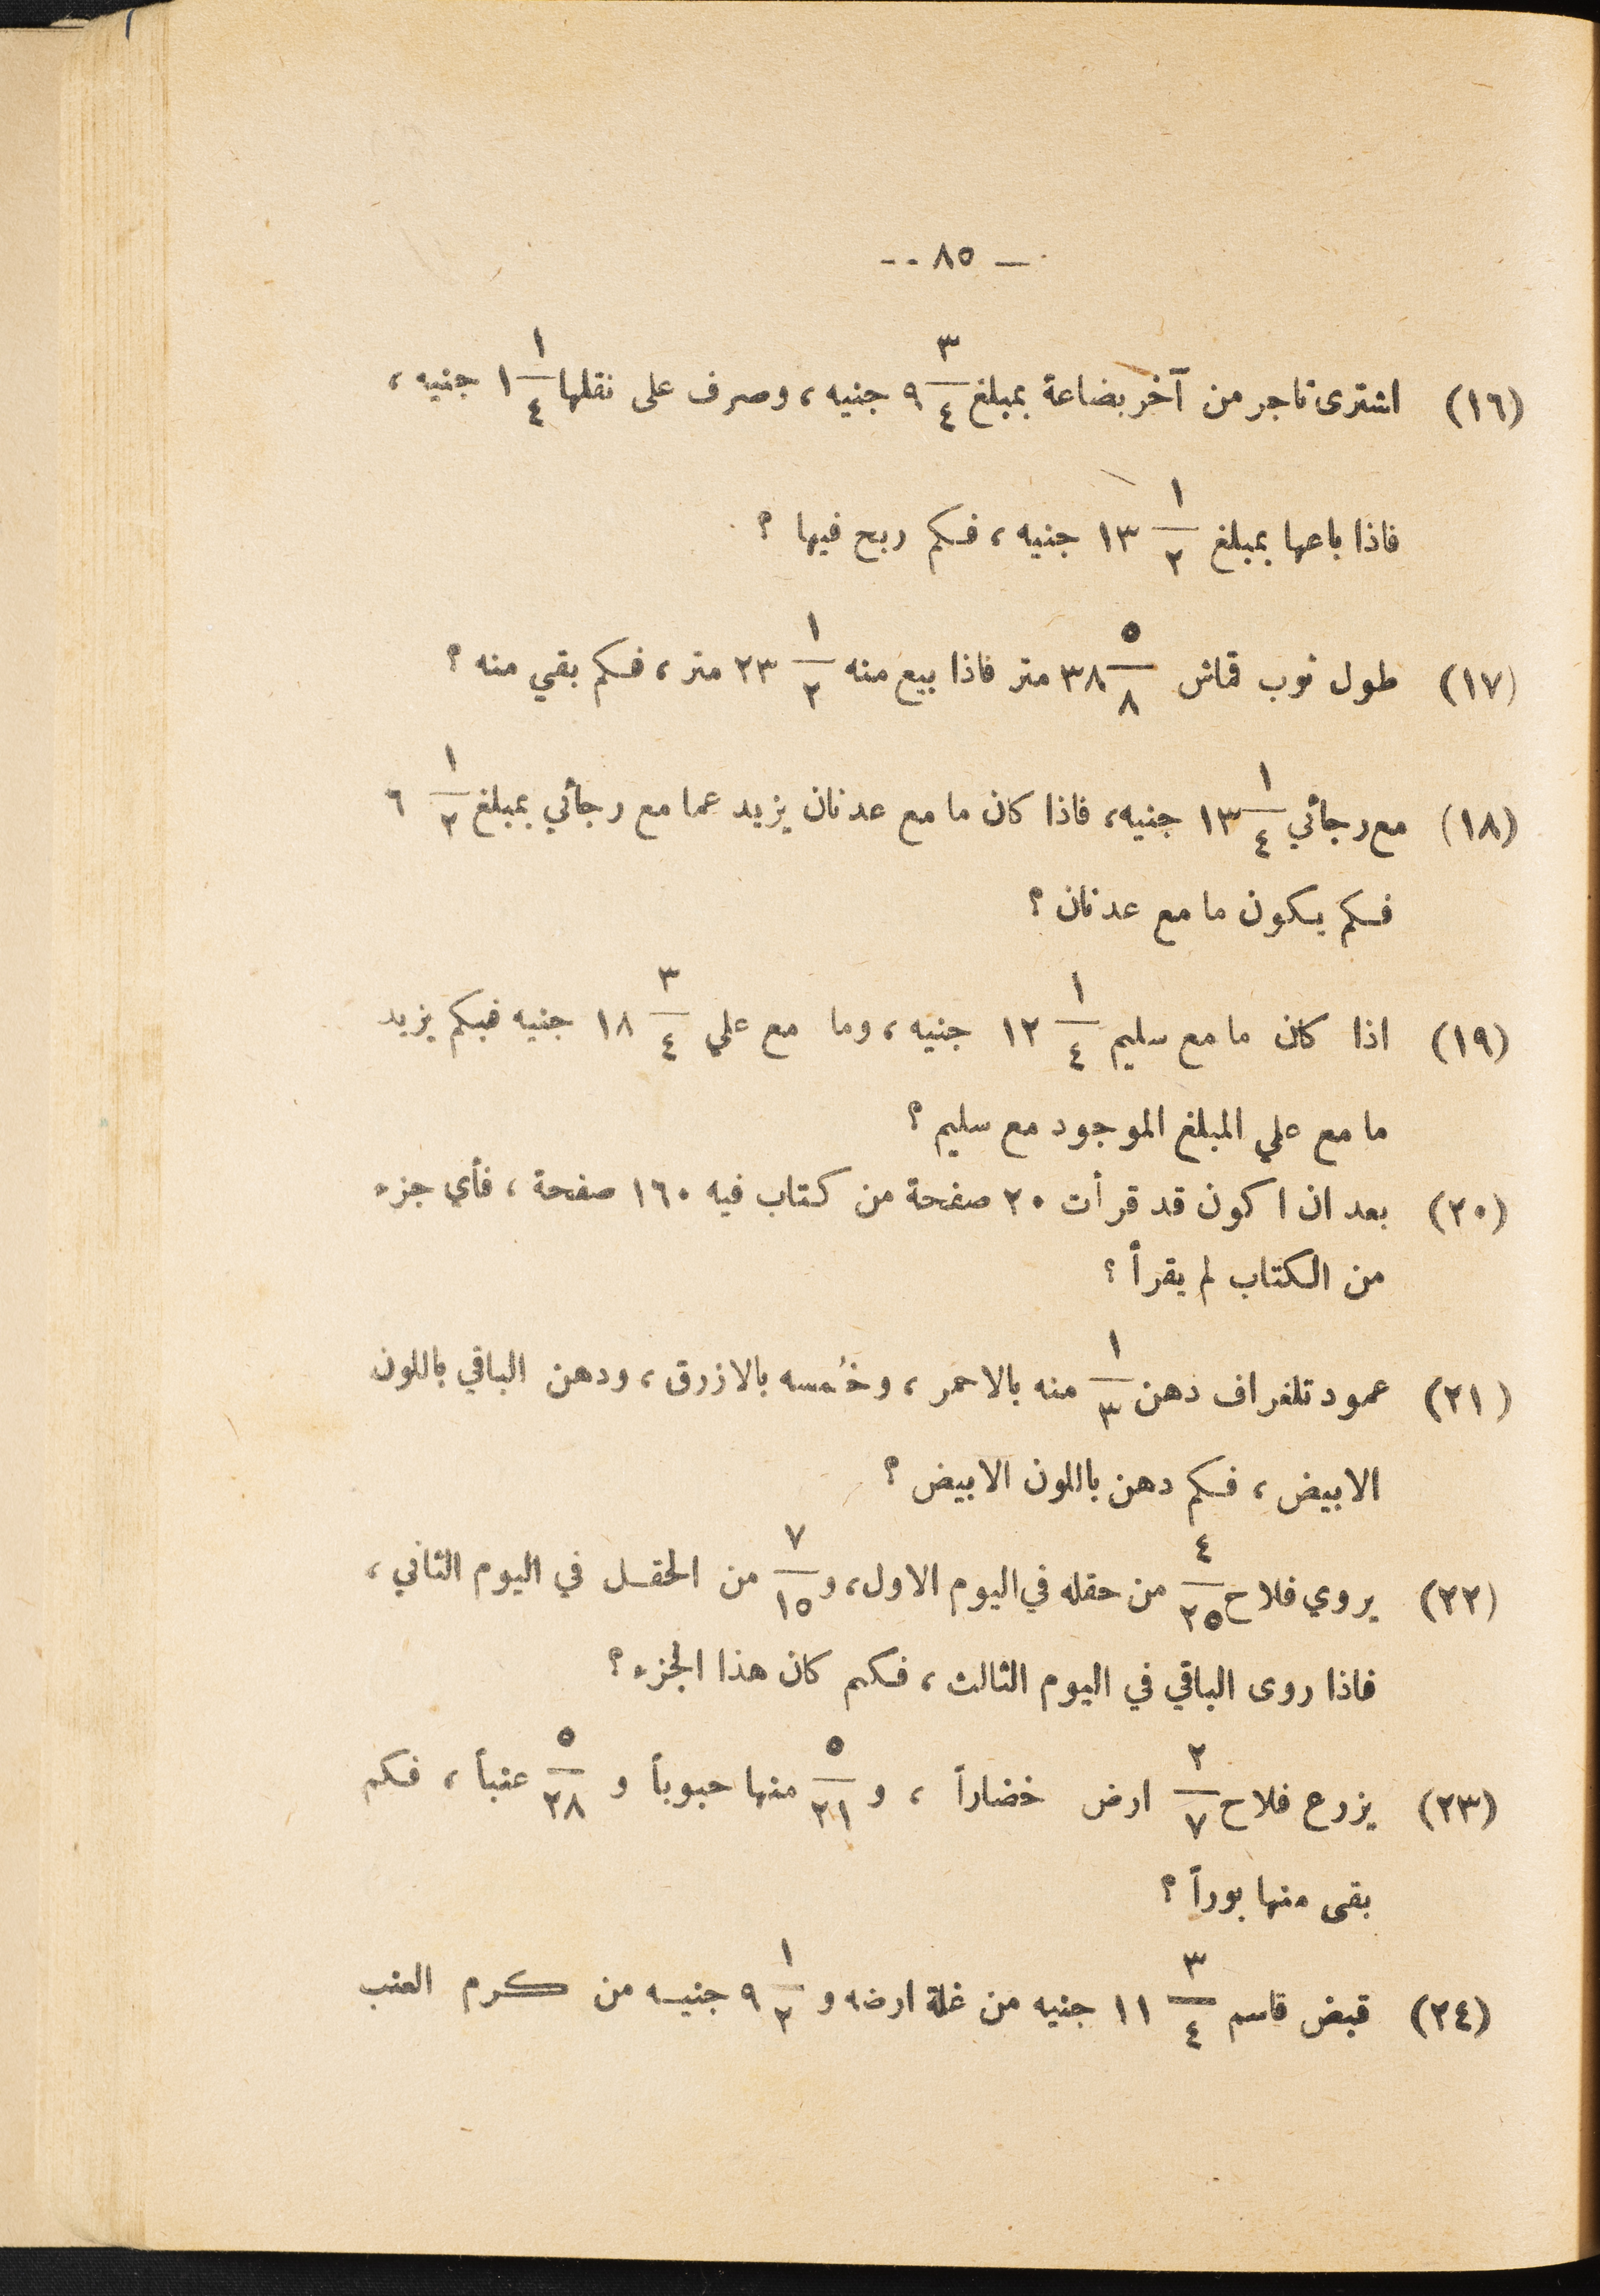 — ٨٥ --
(١٦) اشترى تاجر من آخر بضاعة بمبلغ ٣/٤ ٩ جنيه، وصرف على نقلها ١/٤ ١ جنيه،
فاذا باعها بمبلغ ١/٢ ١٣ جنيه، فكم ربح فيها؟
(١٧) طول ثوب قماش ٥/٨ ٣٨ متر فاذا بيع منه ١/٢ ٢٣ متر، فكم بقي منه؟
(١٨) مع رجائي ١/٤ ١٣ جنيه، فاذا كان ما مع عدنان يزيد عما مع رجائي بمبلغ ١/٢ ٦
فكم يكون ما مع عدنان؟
(١٩) اذا كان ما مع سليم ١/٤ ١٢ جنيه، وما مع علي ٣/٤ ١٨ جنيه فبكم يزيد
ما مع علي المبلغ الموجود مع سليم؟
(٢٠) بعد ان اكون قد قرأت ٢٠ صفحة من كتاب فيه ١٦٠ صفحة، فأي جزء
من الكتاب لم يقرأ؟
(٢١) عمود تلغراف دهن ١/٣ منه بالاحمر، وخُمسه بالازرق، ودهن الباقي باللون
الابيض، فكم دهن باللون الابيض؟
(٢٢) يروي فلاح ٤/٢٥ من حقله في اليوم الاول، و ٧/١٥ من الحقل في اليوم الثاني،
فاذا روى الباقي في اليوم الثالث، فكم كان هذا الجزء؟
(٢٣) يزرع فلاح ٢/٧ ارض خضاراً، و ٥/٢١ منها حبوباً و ٥/٢٨ عنباً، فكم
بقى منها بوراً؟
(٢٤) قبض قاسم ٣/٤ ١١ جنيه من غلة ارضه و ١/٢ ٩ جنيه من كرم العنب